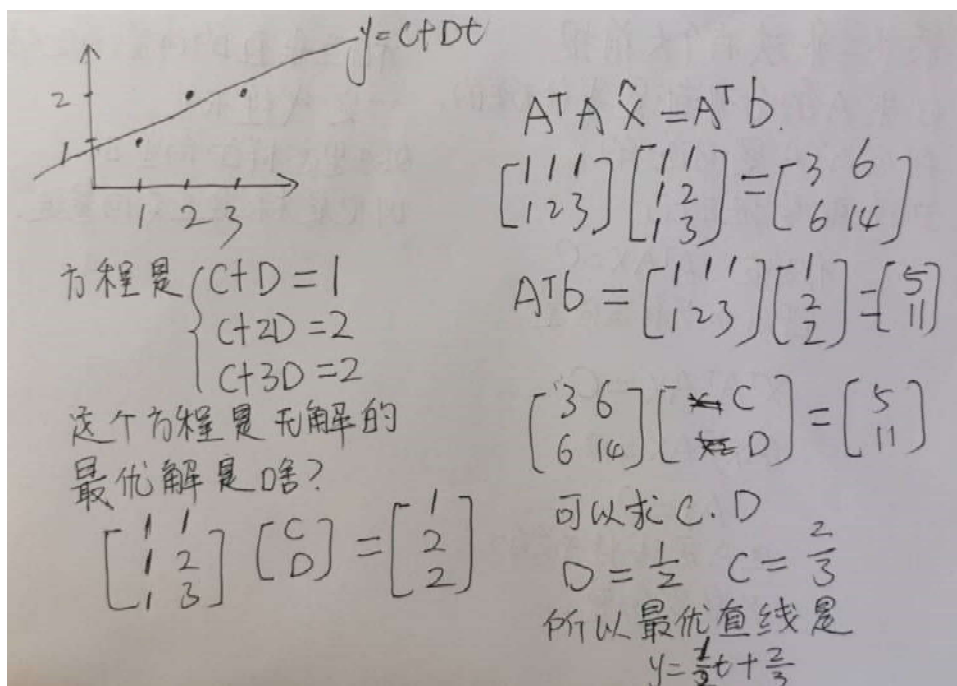 y=C+Dt
2
1
1 2 3
方程是 { C+D=1
C+2D=2
C+3D=2
这个方程是无解的
最优解是啥?
[1 1
1 2
1 3] [C
D] = [1
2
2]
AᵀA x̂ = Aᵀb
[1 1 1
1 2 3] [1 1
1 2
1 3] = [3 6
6 14]
Aᵀb = [1 1 1
1 2 3] [1
2
2] = [5
11]
[3 6
6 14] [C
D] = [5
11]
可以求 C.D
D = 1/2 C = 2/3
所以最优直线是
y = 1/2 t + 2/3